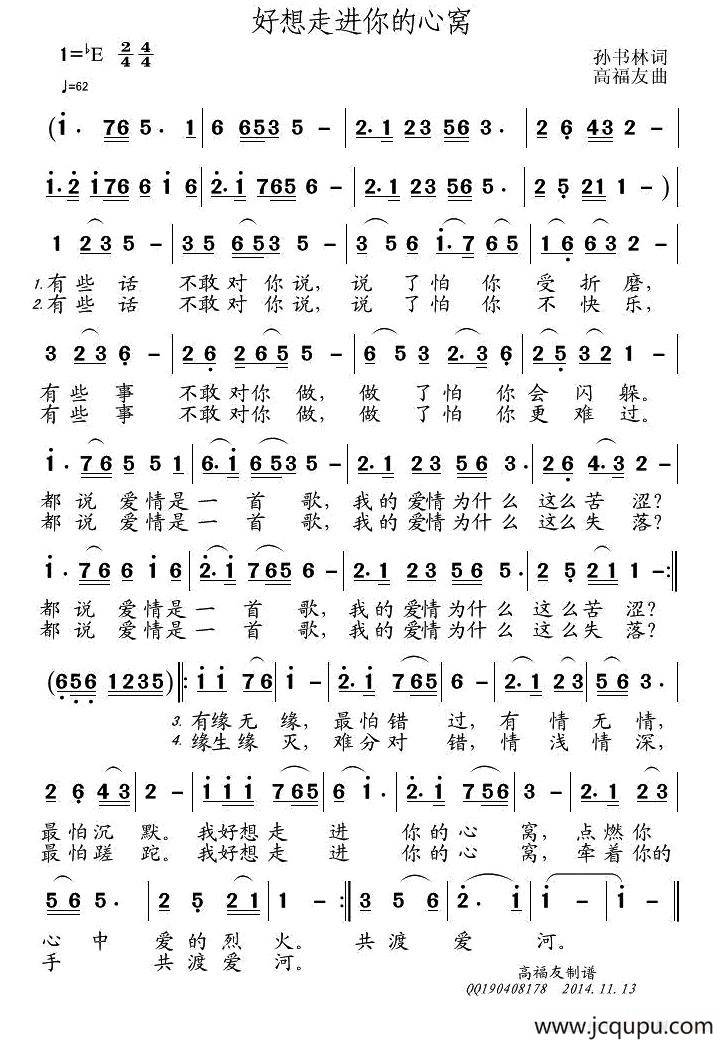 好想走进你的心窝
1=♭E 2/4 4/4
孙书林词
♩=62
高福友曲
(i· 76 5· 1 | 6 653 5 - | 2·1 23 56 3· | 2 6 43 2 - |
i·2 i76 6 i 6 | 2·i 765 6 - | 2·1 23 56 5· | 2 5 21 1 - )
1 23 5 - | 35 653 5 - | 3 56 i·7 65 | 16 63 2 - |
1.有些话 不敢对你说，说了怕你受折磨，
2.有些话 不敢对你说，说了怕你不快乐，
3 23 6 - | 26 265 5 - | 65 53 2·3 6 | 25 32 1 - |
有些事 不敢对你做，做了怕你会闪躲。
有些事 不敢对你做，做了怕你更难过。
i· 76 5 5 1 | 6·i 653 5 - | 2·1 23 56 3· | 26 4·3 2 - |
都说爱情是一首歌，我的爱情为什么这么苦涩？
都说爱情是一首歌，我的爱情为什么这么失落？
i· 76 6 i 6 | 2·i 765 6 - | 2·1 23 56 5· | 2 5 21 1 -:‖
都说爱情是一首歌，我的爱情为什么这么苦涩？
都说爱情是一首歌，我的爱情为什么这么失落？
(656 1235)‖: i i 76 | i - | 2·i 765 | 6 - | 2·1 23 | 56 3· |
3.有缘无缘，最怕错过，有情无情，
4.缘生缘灭，难分对错，情浅情深，
2 6 43 | 2 - | i i i 765 | 6 i· | 2·i 756 | 3 - | 2·1 23 |
最怕沉默。我好想走进你的心窝，点燃你
最怕蹉跎。我好想走进你的心窝，牵着你的
56 5· | 2 5 21 | 1 - :‖ 3 5 6 | 2· i | i - | i - ‖
心中爱的烈火。共渡爱河。
手共渡爱河。
高福友制谱
QQ190408178 2014.11.13
www.jcqupu.com